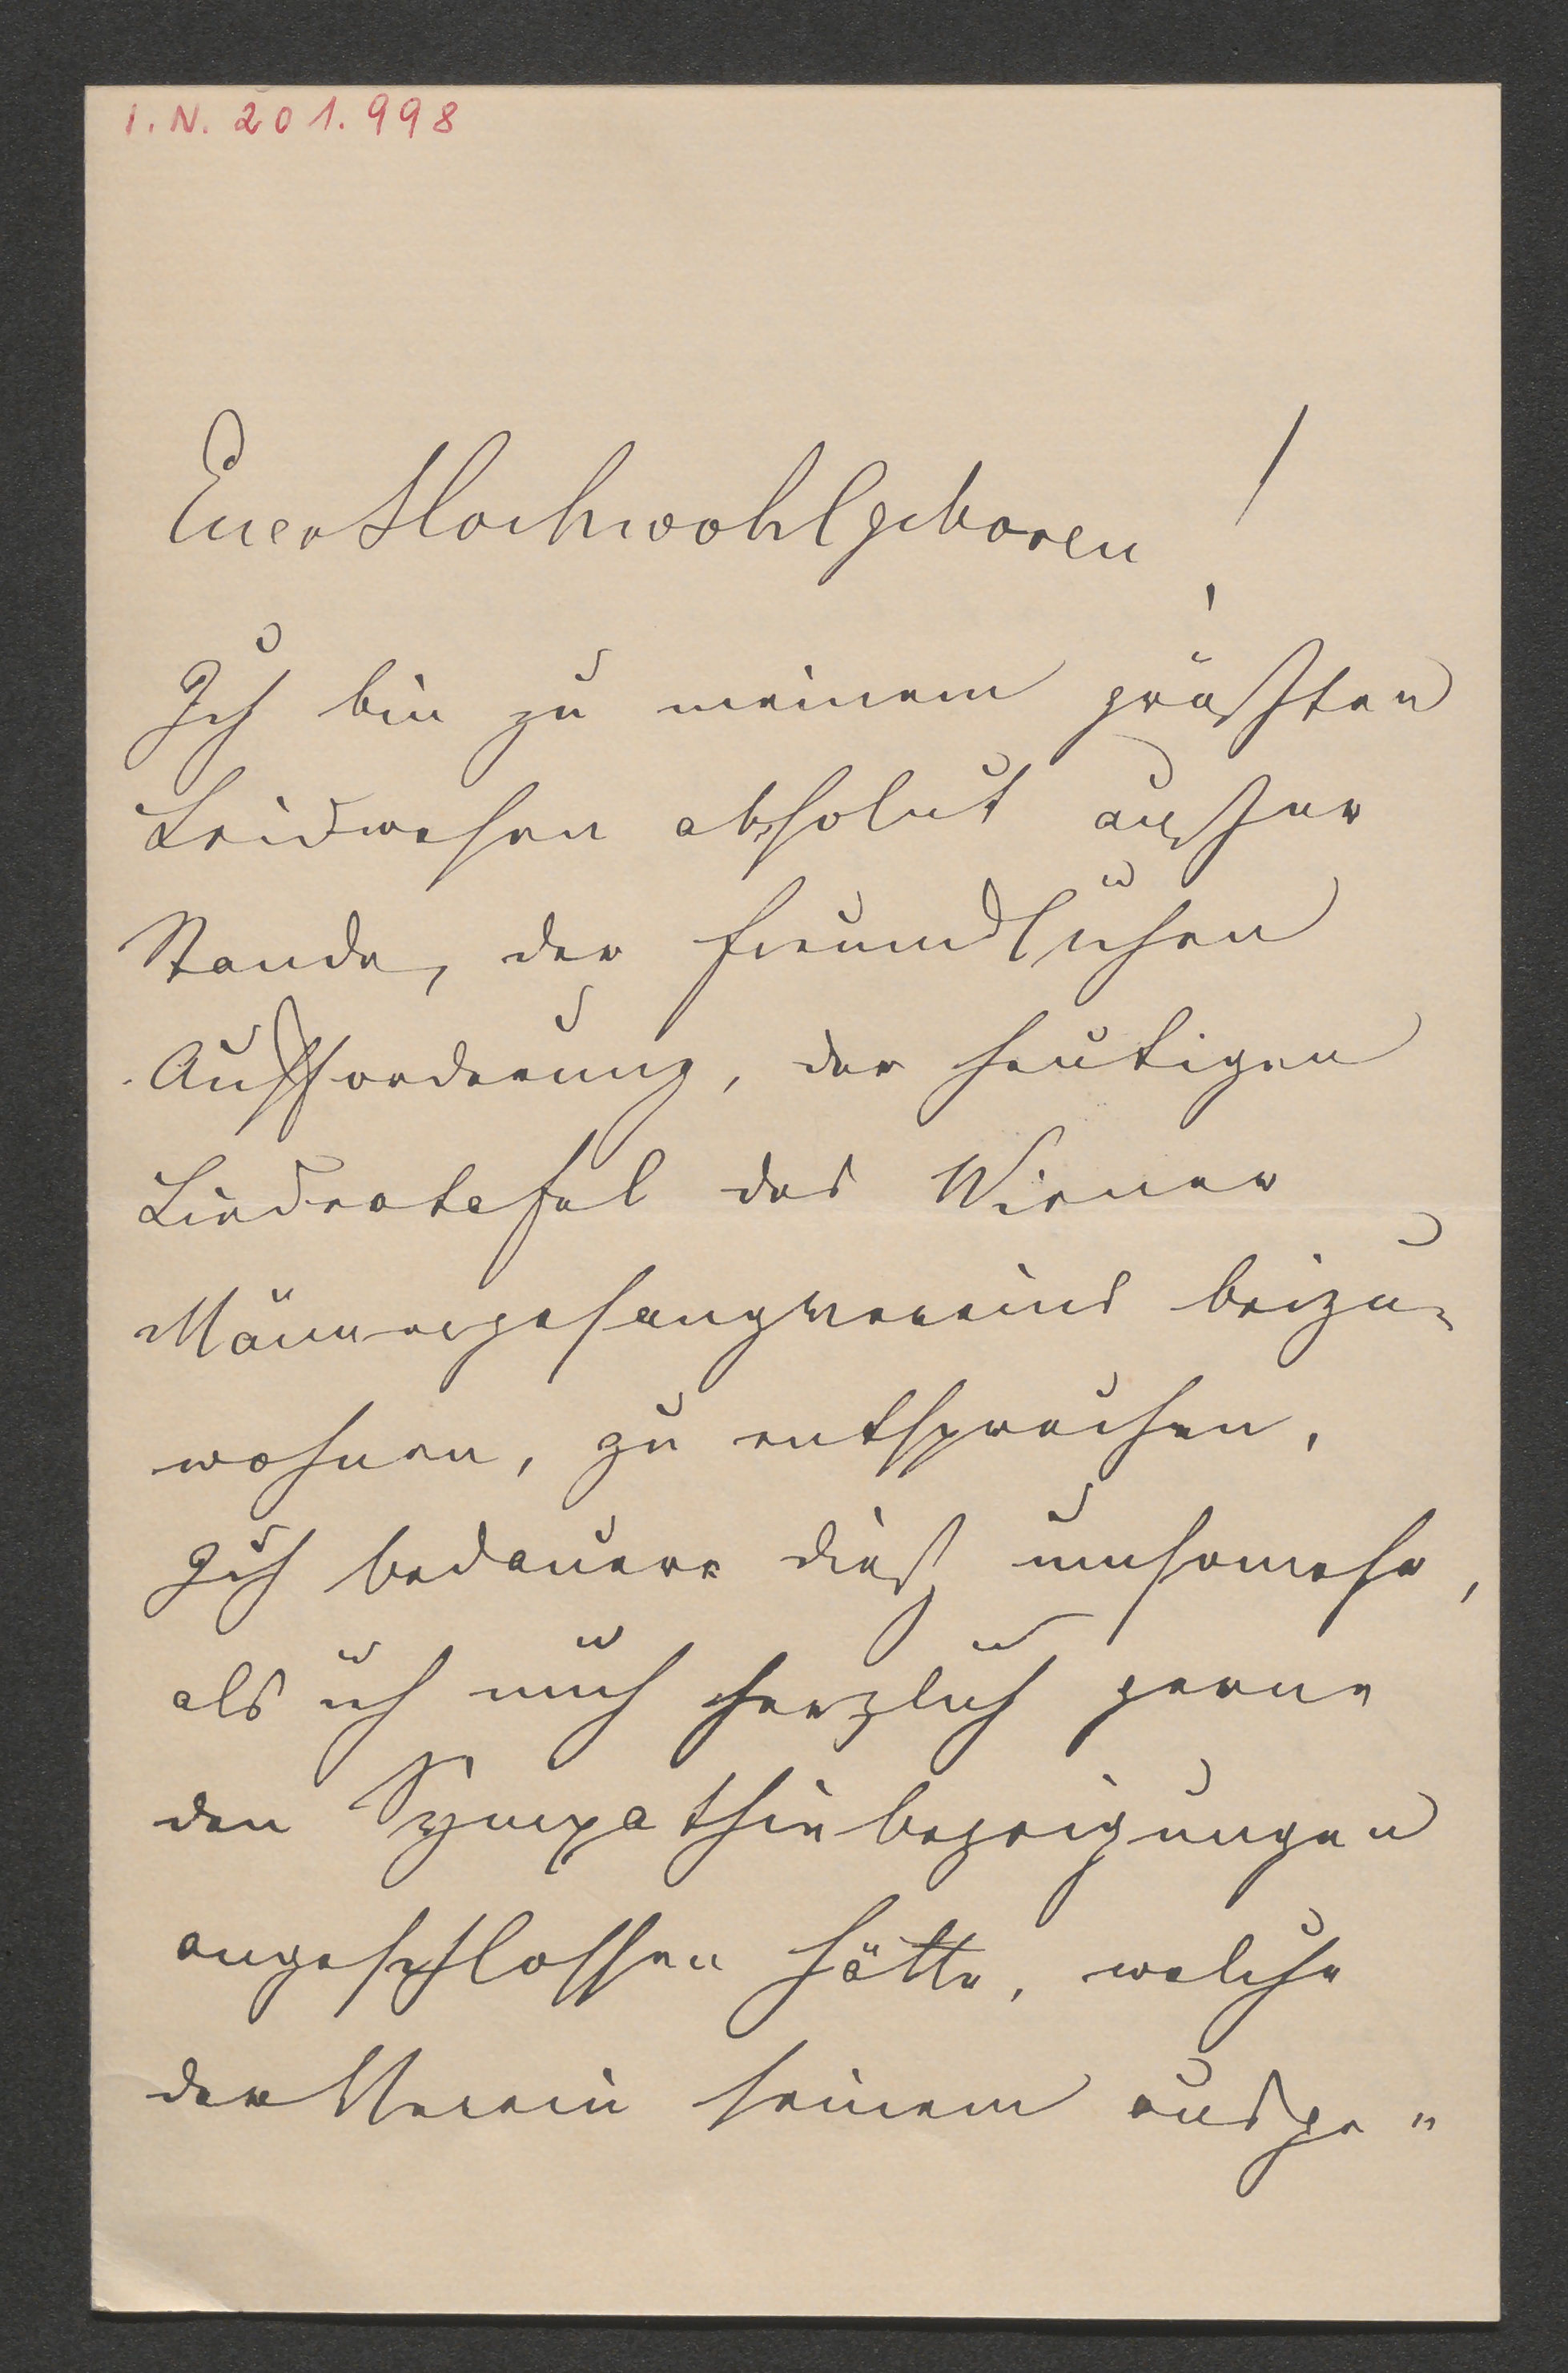 I.N. 201.998
Euer Hochwohlgeboren!
Ich bin zu meinem größten
Leidwesen absolut außer
Stande, der freundlichen
Aufforderung, der heutigen
Liedertafel des Wiener
Männergesangvereins beizu-
wohnen, zu entsprechen,
Ich bedauere dieß umsomehr,
als ich mich herzlich gerne
den Sympathiebezeigungen
angeschlossen hätte, welche
der Verein seinem ausge-